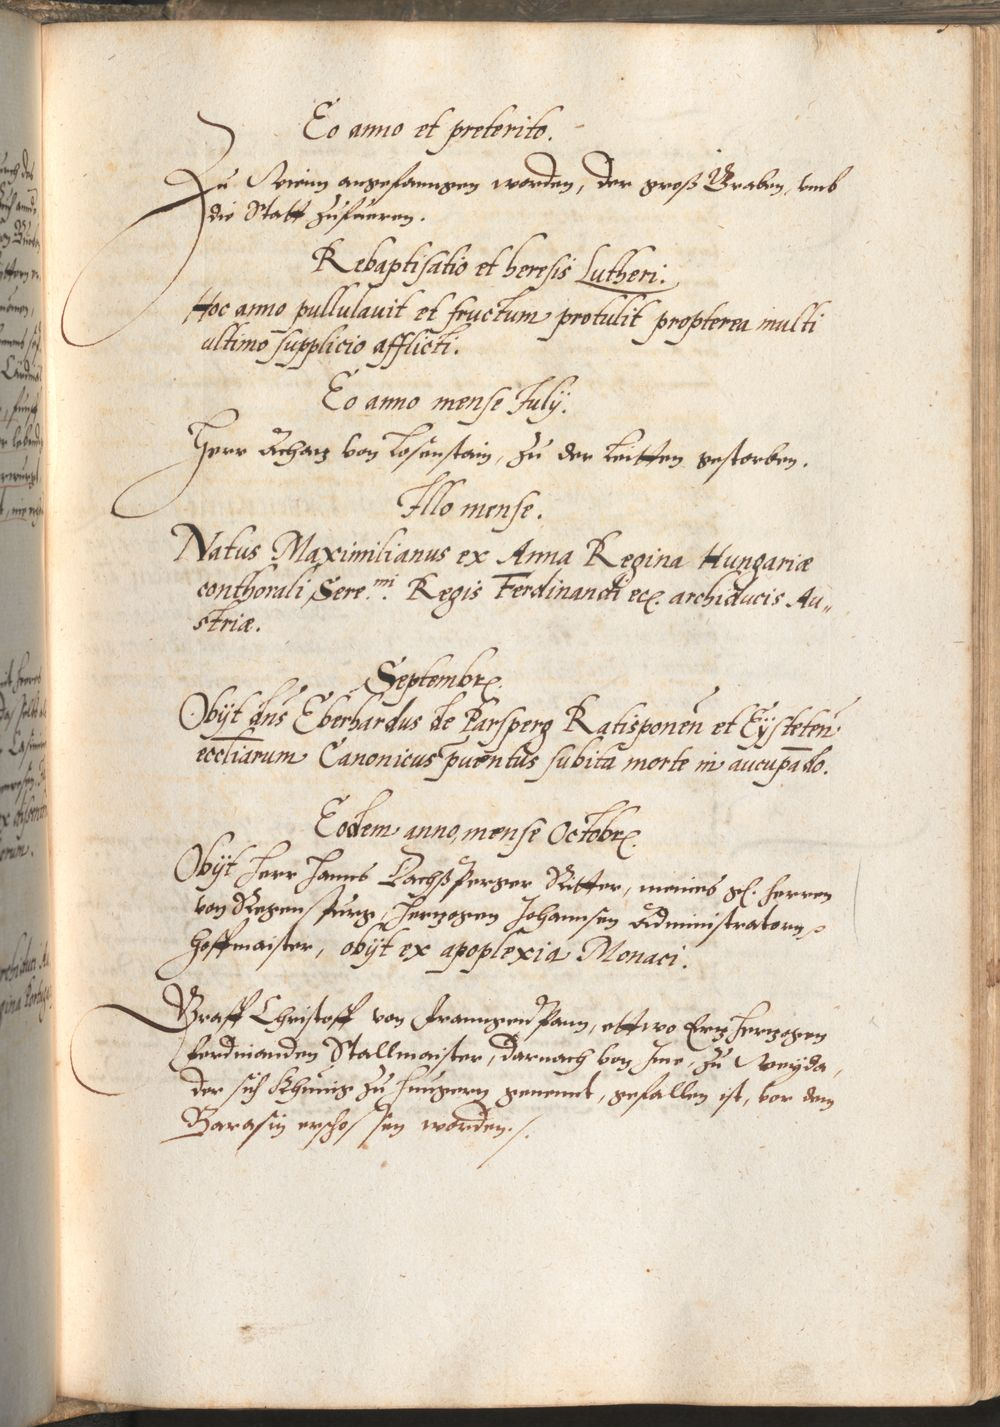 Eo anno et preterito.
Zu Wienn angefanngen worden, der groß Graben, vmb
die Statt zufüeren.
Rebaptisatio et heresis Lutheri.
Hoc anno pullulauit et fructum protulit propterea multi
ultimo supplicio afflicti.
Eo anno mense Julÿ.
Herr Achatz von Losenstain, zu der Leitten gestorben.
Illo mense.
Natus Maximilianus ex Anna Regina Hungariæ
conthorali Sere.mi Regis Ferdinandi ec. archiducis Au„
striæ.
Septembr.
Obÿt dn̄s Eberhardus de Parsperg Ratisponen̄ et Eÿsteten̄
eccl̄iarum Canonicus subita morte in aucupando.
Eodem anno, mense Octobr.
Obÿt Herr Hanns Dachßperger Ritter, meines g. Herren
von Regenspurg, Hertzogen Johannsen Administratorn
Hoffmaister, obÿt ex apoplexia Monaci.
Graff Christoff von Franngenpann, ettwo Ertzhertzogen
Ferdinanden Stallmaister, darnach von Ime, zu Weyda,
der sich Khünig zu Hungern genennt, gefallen ist, vor dem
Warasin erschossen worden ./.